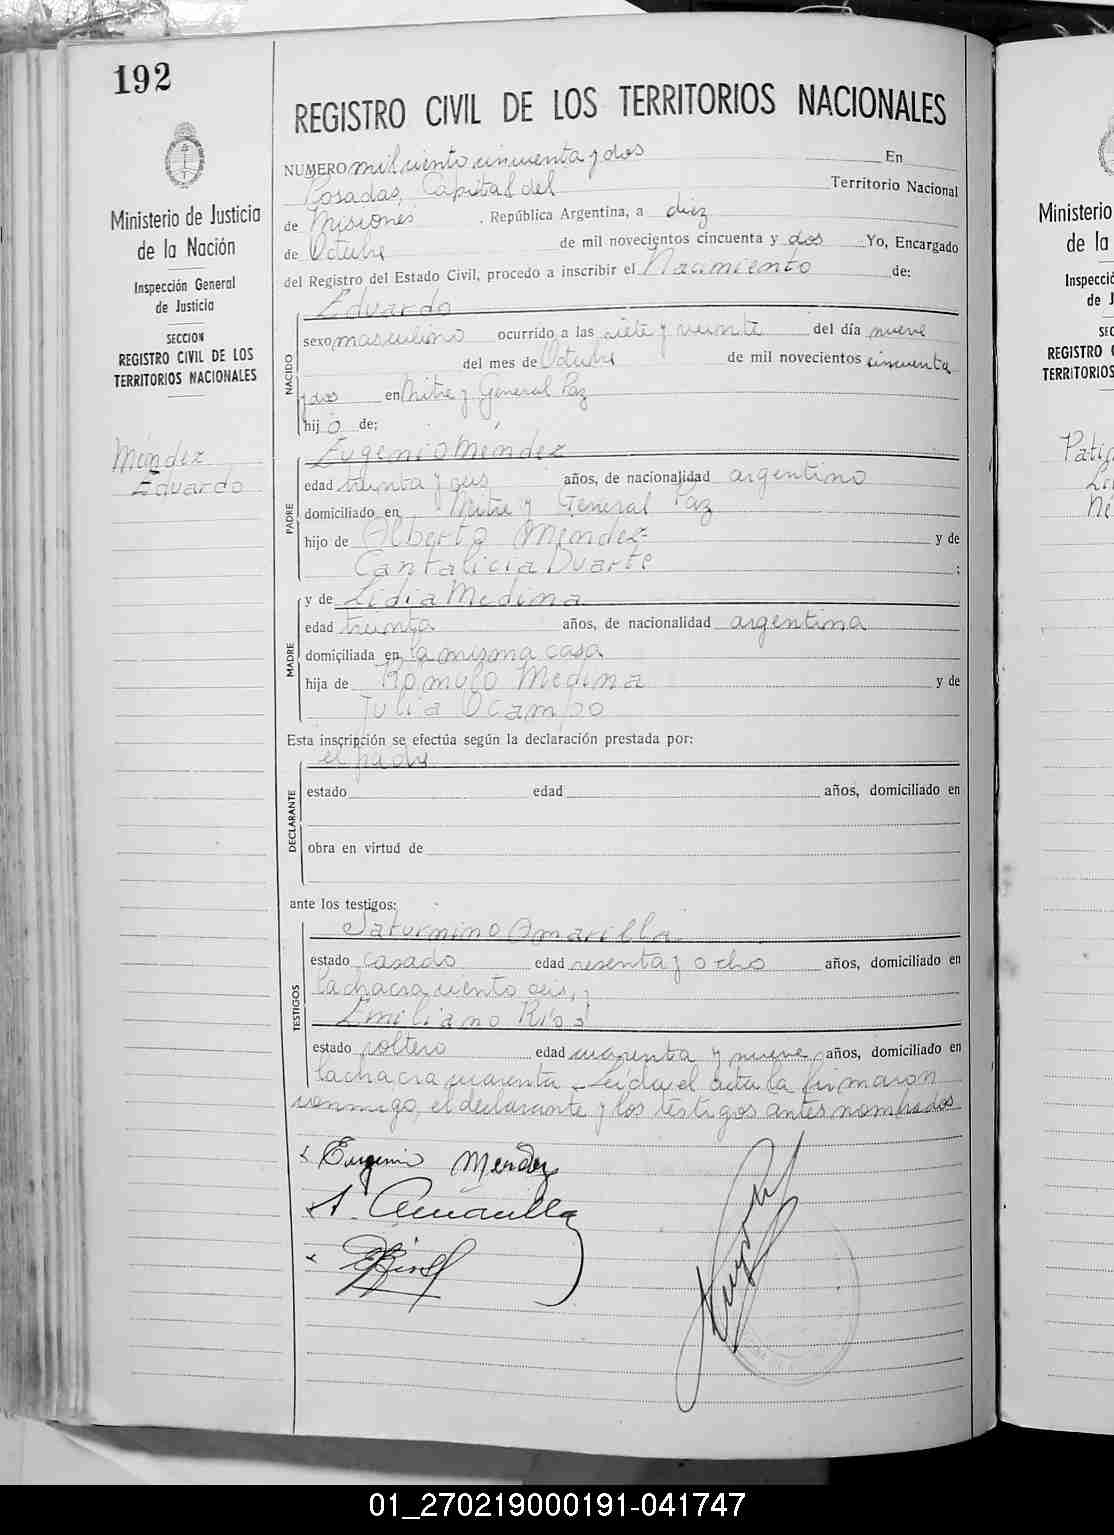 192
REGISTRO CIVIL DE LOS TERRITORIOS NACIONALES
Ministerio de Justicia
de la Nación
Inspección General
de Justicia
SECCION
REGISTRO CIVIL DE LOS
TERRITORIOS NACIONALES
Méndez
Eduardo
NUMERO mil ciento cincuenta y dos En
Posadas, Capital del Territorio Nacional
de Misiones. República Argentina, a diez
de Octubre de mil novecientos cincuenta y dos Yo, Encargado
del Registro del Estado Civil, procedo a inscribir el Nacimiento de:
Eduardo
NACIDO
sexo masculino ocurrido a las siete y veinte del día nueve
del mes de Octubre de mil novecientos cincuenta
y dos en Mitre y General Paz
hijo de:
Eugenio Méndez
PADRE
edad treinta y seis años, de nacionalidad argentino
domiciliado en Mitre y General Paz
hijo de Alberto Méndez y de
Cantalicia Duarte ;
y de Lidia Medina
MADRE
edad treinta años, de nacionalidad argentina
domiciliada en la misma casa
hija de Rómulo Medina y de
Julia Ocampo
Esta inscripción se efectúa según la declaración prestada por:
el padre
DECLARANTE
estado edad años, domiciliado en
obra en virtud de
ante los testigos:
Saturnino Amarilla
TESTIGOS
estado casado edad sesenta y ocho años, domiciliado en
la chacra ciento seis, y
Emiliano Ríos
estado soltero edad cuarenta y nueve años, domiciliado en
la chacra cuarenta. Leida el acta la firmaron
conmigo, el declarante y los testigos antes nombrados
Eugenio Mendez
A. Amarilla
ERios
Ministerio
de la
REGISTRO
TERRITORIOS
01_270219000191-041747